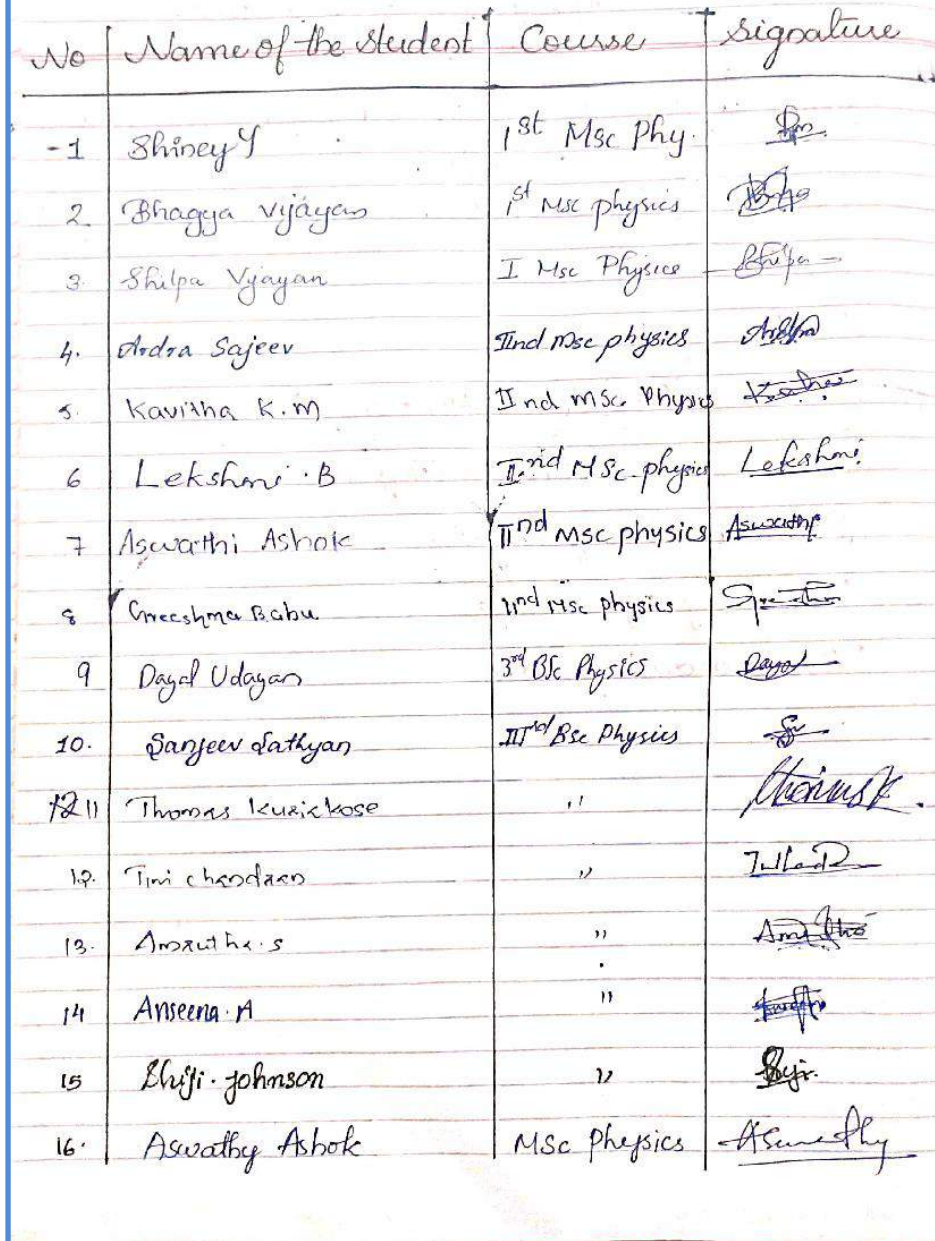 No Name of the student Course Signature
-1 Shiney Y 1st Msc Phy.
2 Bhagya Vijayan 1st Msc physics
3. Shilpa Vijayan I Msc Physics Shilpa
4. Ardra Sajeev IInd Msc physics Ardra
5. Kavitha K.M IInd MSc. Physics
6 Lekshmi . B IInd MSc. physics Lekshmi
7 Aswathi Ashok IInd Msc physics Aswathy
8 Greeshma Babu IInd Msc physics
9 Dayal Udayan 3rd BSc Physics Dayal
10. Sanjeev Sathyan IIIrd Bsc Physics
12 11 Thomas Kuriakose " Thomas K.
12. Tini chandran "
13. Amrutha. S "
14 Anseena. A "
15 Shiji. Johnson "
16. Aswathy Ashok MSc Physics Aswathy